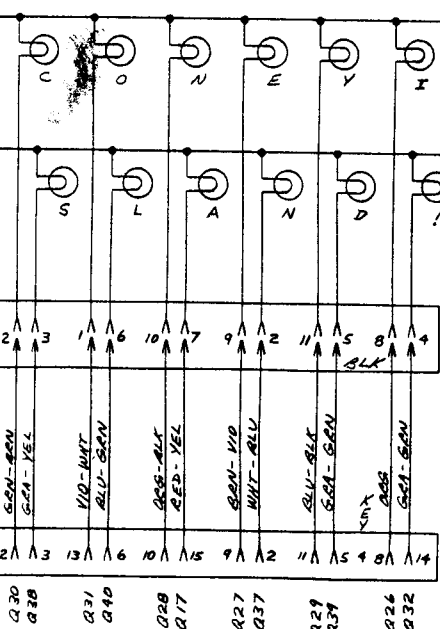 C O N E Y I
S L A N D !
2 3 1 6 10 7 9 2 11 5 8 4
BLK
GRN-BRN
GRA-YEL
VIO-WHT
BLU-GRN
ORG-BLK
RED-YEL
BRN-VIO
WHT-BLU
BLU-BLK
GRA-GRN
KEY
ORG
GRA-GRN
2 3 13 6 10 15 9 2 11 5 4 8 14
Q30
Q38
Q31
Q40
Q28
Q17
Q27
Q37
Q29
Q39
Q26
Q32